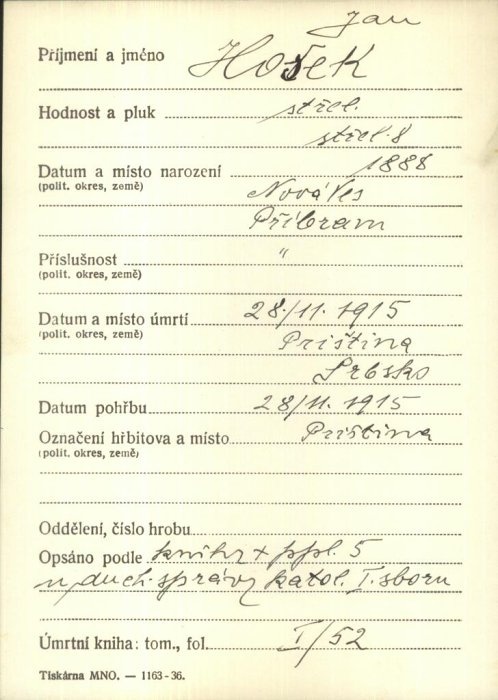 Jan
Příjmení a jméno Hošek
Hodnost a pluk střel.
střel. 8
Datum a místo narození 1888
(polit. okres, země) Nová Ves
Příbram
Příslušnost "
(polit. okres, země)
Datum a místo úmrtí 28./11. 1915
(polit. okres, země) Priština
Srbsko
Datum pohřbu 28/11. 1915
Označení hřbitova a místo Priština
(polit. okres, země)
Oddělení, číslo hrobu
Opsáno podle knihy + ppl. 5
u duch. správy katol. I. sboru
Úmrtní kniha: tom., fol. I/52
Tiskárna MNO. — 1163-36.